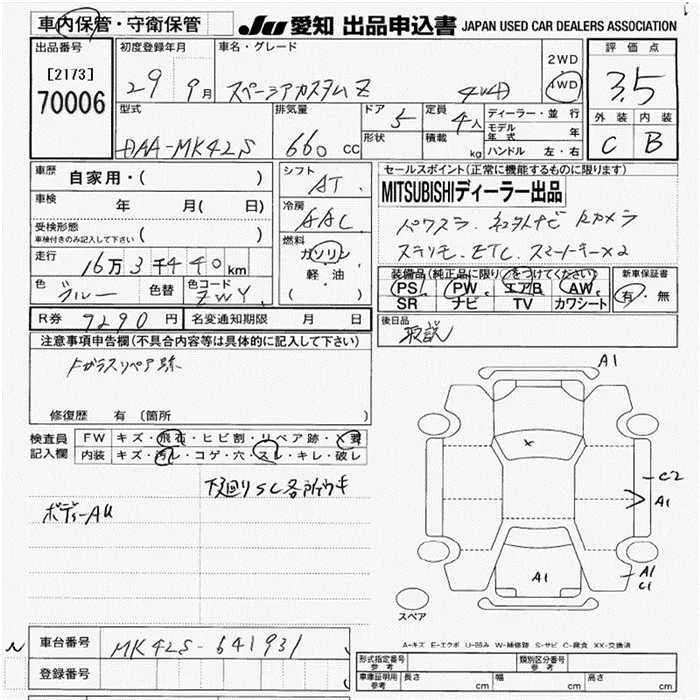 車内保管・守衛保管 JU 愛知 出品申込書 JAPAN USED CAR DEALERS ASSOCIATION
出品番号 初度登録年月 車名・グレード 評価点
[2173] 29 9月 スペーシアカスタムZ 4WD 2WD 4WD 3.5
70006
型式 排気量 ドア 5 定員 4人 ディーラー・並行 外装 内装
DAA-MK42S 660 cc 形状 積載 kg モデル年式 年 C B
ハンドル 左・右
車歴 自家用・( ) シフト AT セールスポイント(正常に機能するものに限ります)
車検 年 月( 日) 冷房 AAC MITSUBISHIディーラー出品
受検形態 ( ) パワスラ. ナビ Bカメラ
車検付きのみ記入して下さい 燃料 ガソリン スラリモ. ETC. スマートキー×2
走行 16万3千440km 軽・油 装備品(純正品に限り○をつけてください) 新車保証書
色 ブルー 色替 色コード ZWY ( ) PS PW エアB AW 有・無
SR ナビ TV カワシート
R券 7290円 名変通知期限 月 日 後日品
注意事項申告欄(不具合内容等は具体的に記入して下さい) 取説
Fガラスリペア跡
修復歴 有 (箇所 )
A1
検査員 FW キズ・飛石・ヒビ割・リペア跡・X要
記入欄 内装 キズ・汚レ・コゲ・穴・スレ・キレ・破レ
X
下廻りSC各所ウキ
C2
ボディーAU
A1
A1
A1
C1
スペア
A-キズ E-エクボ U-凹み W-補修跡 S-サビ C-腐食 XX-交換済
N 車台番号 MK42S-641931
登録番号
型式指定番号 参考 類別区分番号 参考
車庫証明用 参考 長さ cm 幅 cm 高さ cm